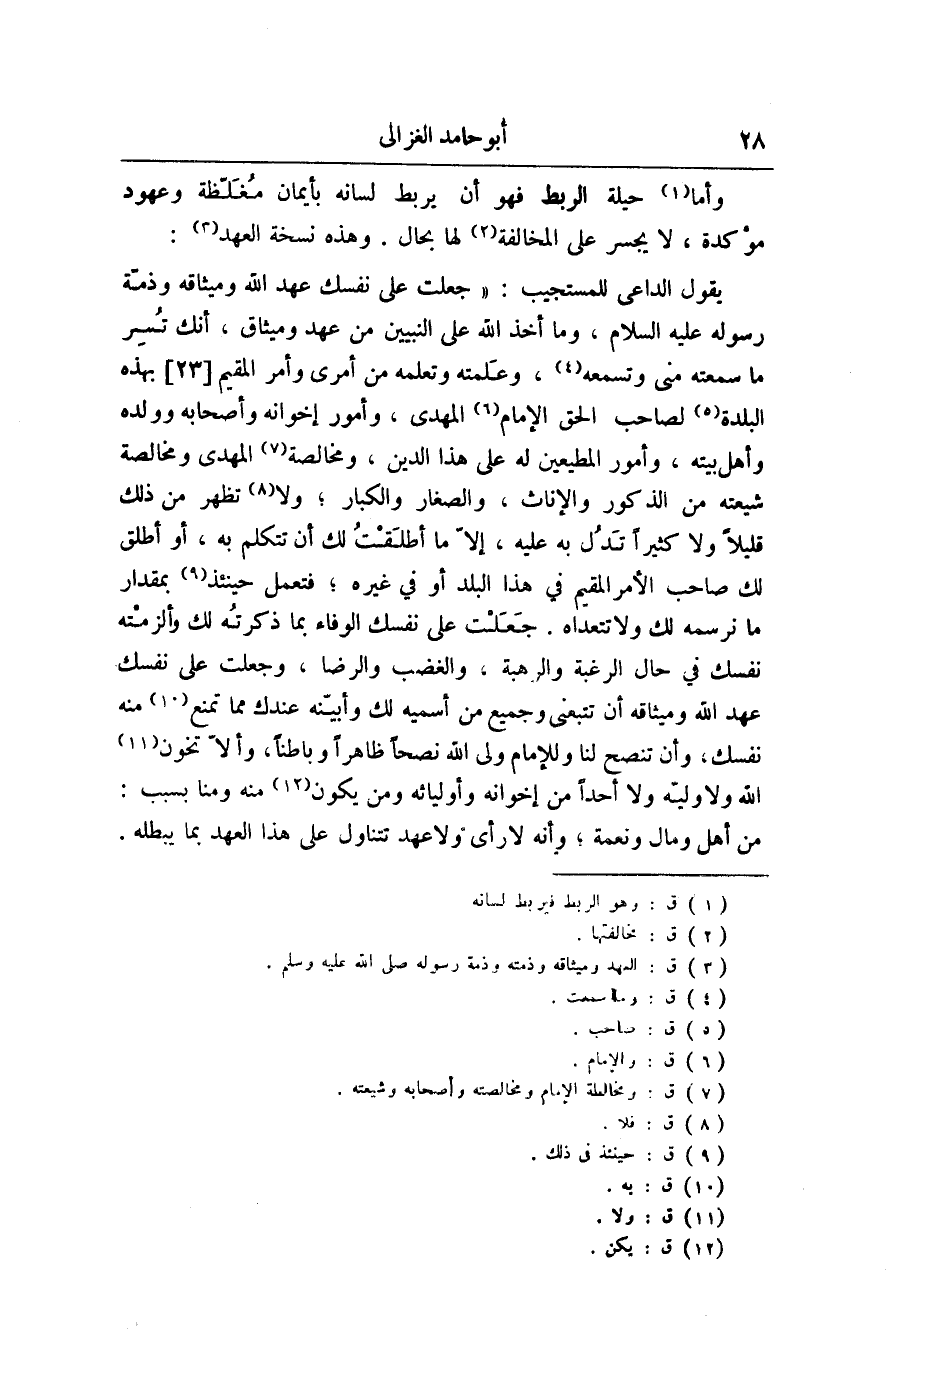 ٢٨
أبو حامد الغزالى
وأما(١) حيلة الربط فهو أن يربط لسانه بأيمان مُغَلَّظة وعهود
مؤكدة ، لا يجسر على المخالفة(٢) لها بحال . وهذه نسخة العهد(٣) :
يقول الداعى للمستجيب : « جعلت على نفسك عهد الله وميثاقه وذمّة
رسوله عليه السلام ، وما أخذ الله على النبيين من عهد وميثاق ، أنك تُسِر
ما سمعته منى وتسمعه(٤) ، وعَلمته وتعلمه من أمرى وأمر المقيم [٢٣] بهذه
البلدة(٥) لصاحب الحق الإمام(٦) المهدى ، وأمور إخوانه وأصحابه وولده
وأهل بيته ، وأمور المطيعين له على هذا الدين ، ومخالصة(٧) المهدى ومخالصة
شيعته من الذكور والإناث ، والصغار والكبار ؛ ولا(٨) تظهر من ذلك
قليلاً ولا كثيراً تَدُل به عليه ، إلاّ ما أطلَقْتُ لك أن تتكلم به ، أو أطلق
لك صاحب الأمر المقيم في هذا البلد أو في غيره ؛ فتعمل حينئذ(٩) بمقدار
ما نرسمه لك ولا تتعداه . جَعَلْت على نفسك الوفاء بما ذكرتُه لك وألزمْته
نفسك في حال الرغبة والرهبة ، والغضب والرضا ، وجعلت على نفسك
عهد الله وميثاقه أن تتبعنى وجميع من أسميه لك وأبيّنه عندك مما تمنع(١٠) منه
نفسك، وأن تنصح لنا وللإمام ولى الله نصحاً ظاهراً وباطناً، وألاّ تخون(١١)
الله ولا وليّه ولا أحداً من إخوانه وأوليائه ومن يكون(١٢) منه ومنا بسبب :
من أهل ومال ونعمة ؛ وأنه لا رأى ولا عهد تتناول على هذا العهد بما يبطله .
(١) ق : وهو الربط فيربط لسانه
(٢) ق : مخالفتها .
(٣) ق : العهد وميثاقه وذمته وذمة رسوله صلى الله عليه وسلم .
(٤) ق : وما سمعت .
(٥) ق : صاحب .
(٦) ق : والإمام .
(٧) ق : ومخالطة الإمام ومخالصته وأصحابه وشيعته .
(٨) ق : فلا .
(٩) ق : حينئذ فى ذلك .
(١٠) ق : به .
(١١) ق : ولا .
(١٢) ق : يكن .